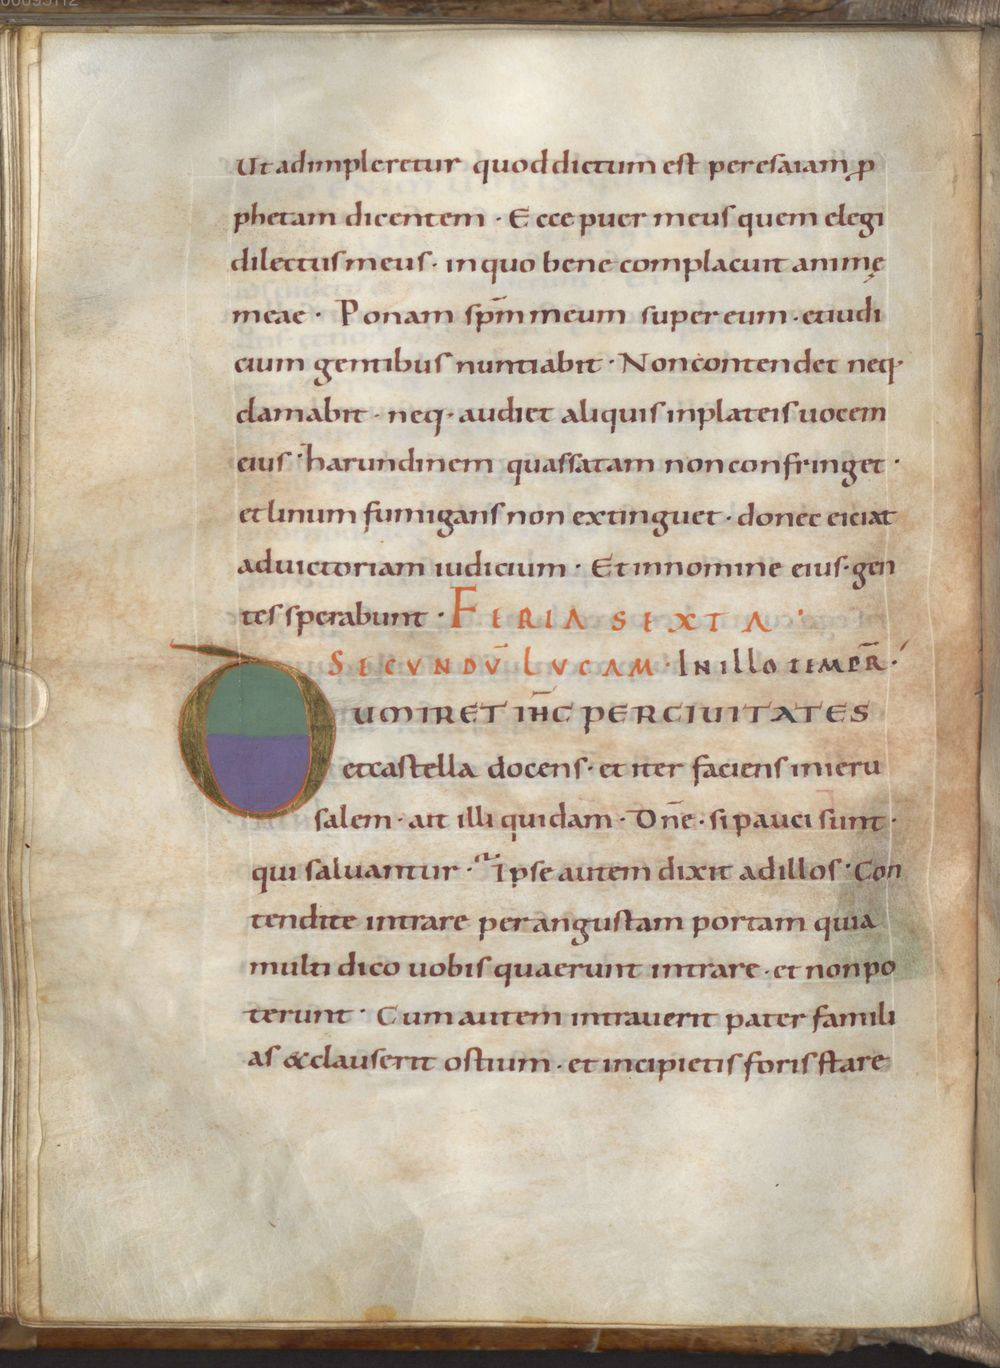 Ut adimpleretur quod dictum est per esaiam, p̱
phetam dicentem · Ecce puer meus quem elegi
dilectus meus · in quo bene complacuit animę
meae · Ponam sp̄m meum super eum · et iudi
cium gentibus nuntiabit · Non contendet neq·
clamabit · neq· audiet aliquis in plateis uocem
eius · harundinem quassatam non confringet ·
et linum fumigans non extinguet · donec eiciat
ad uictoriam iudicium · Et in nomine eius · gen
tes sperabunt · FERIA SEXTA ·
SECVNDŪ LVCAM · IN ILLO TEMPR̄ ·
D UM IRET IH̄C PER CIUITATES
et castella docens · et iter faciens in ieru
salem · ait illi quidam · Dn̄e · si pauci sunt ·
qui saluantur · Ipse autem dixit ad illos · Con
tendite intrare per angustam portam quia
multi dico uobis quaerunt intrare · et non po
terunt · Cum autem intrauerit pater famili
as & clauserit ostium · et incipietis foris stare